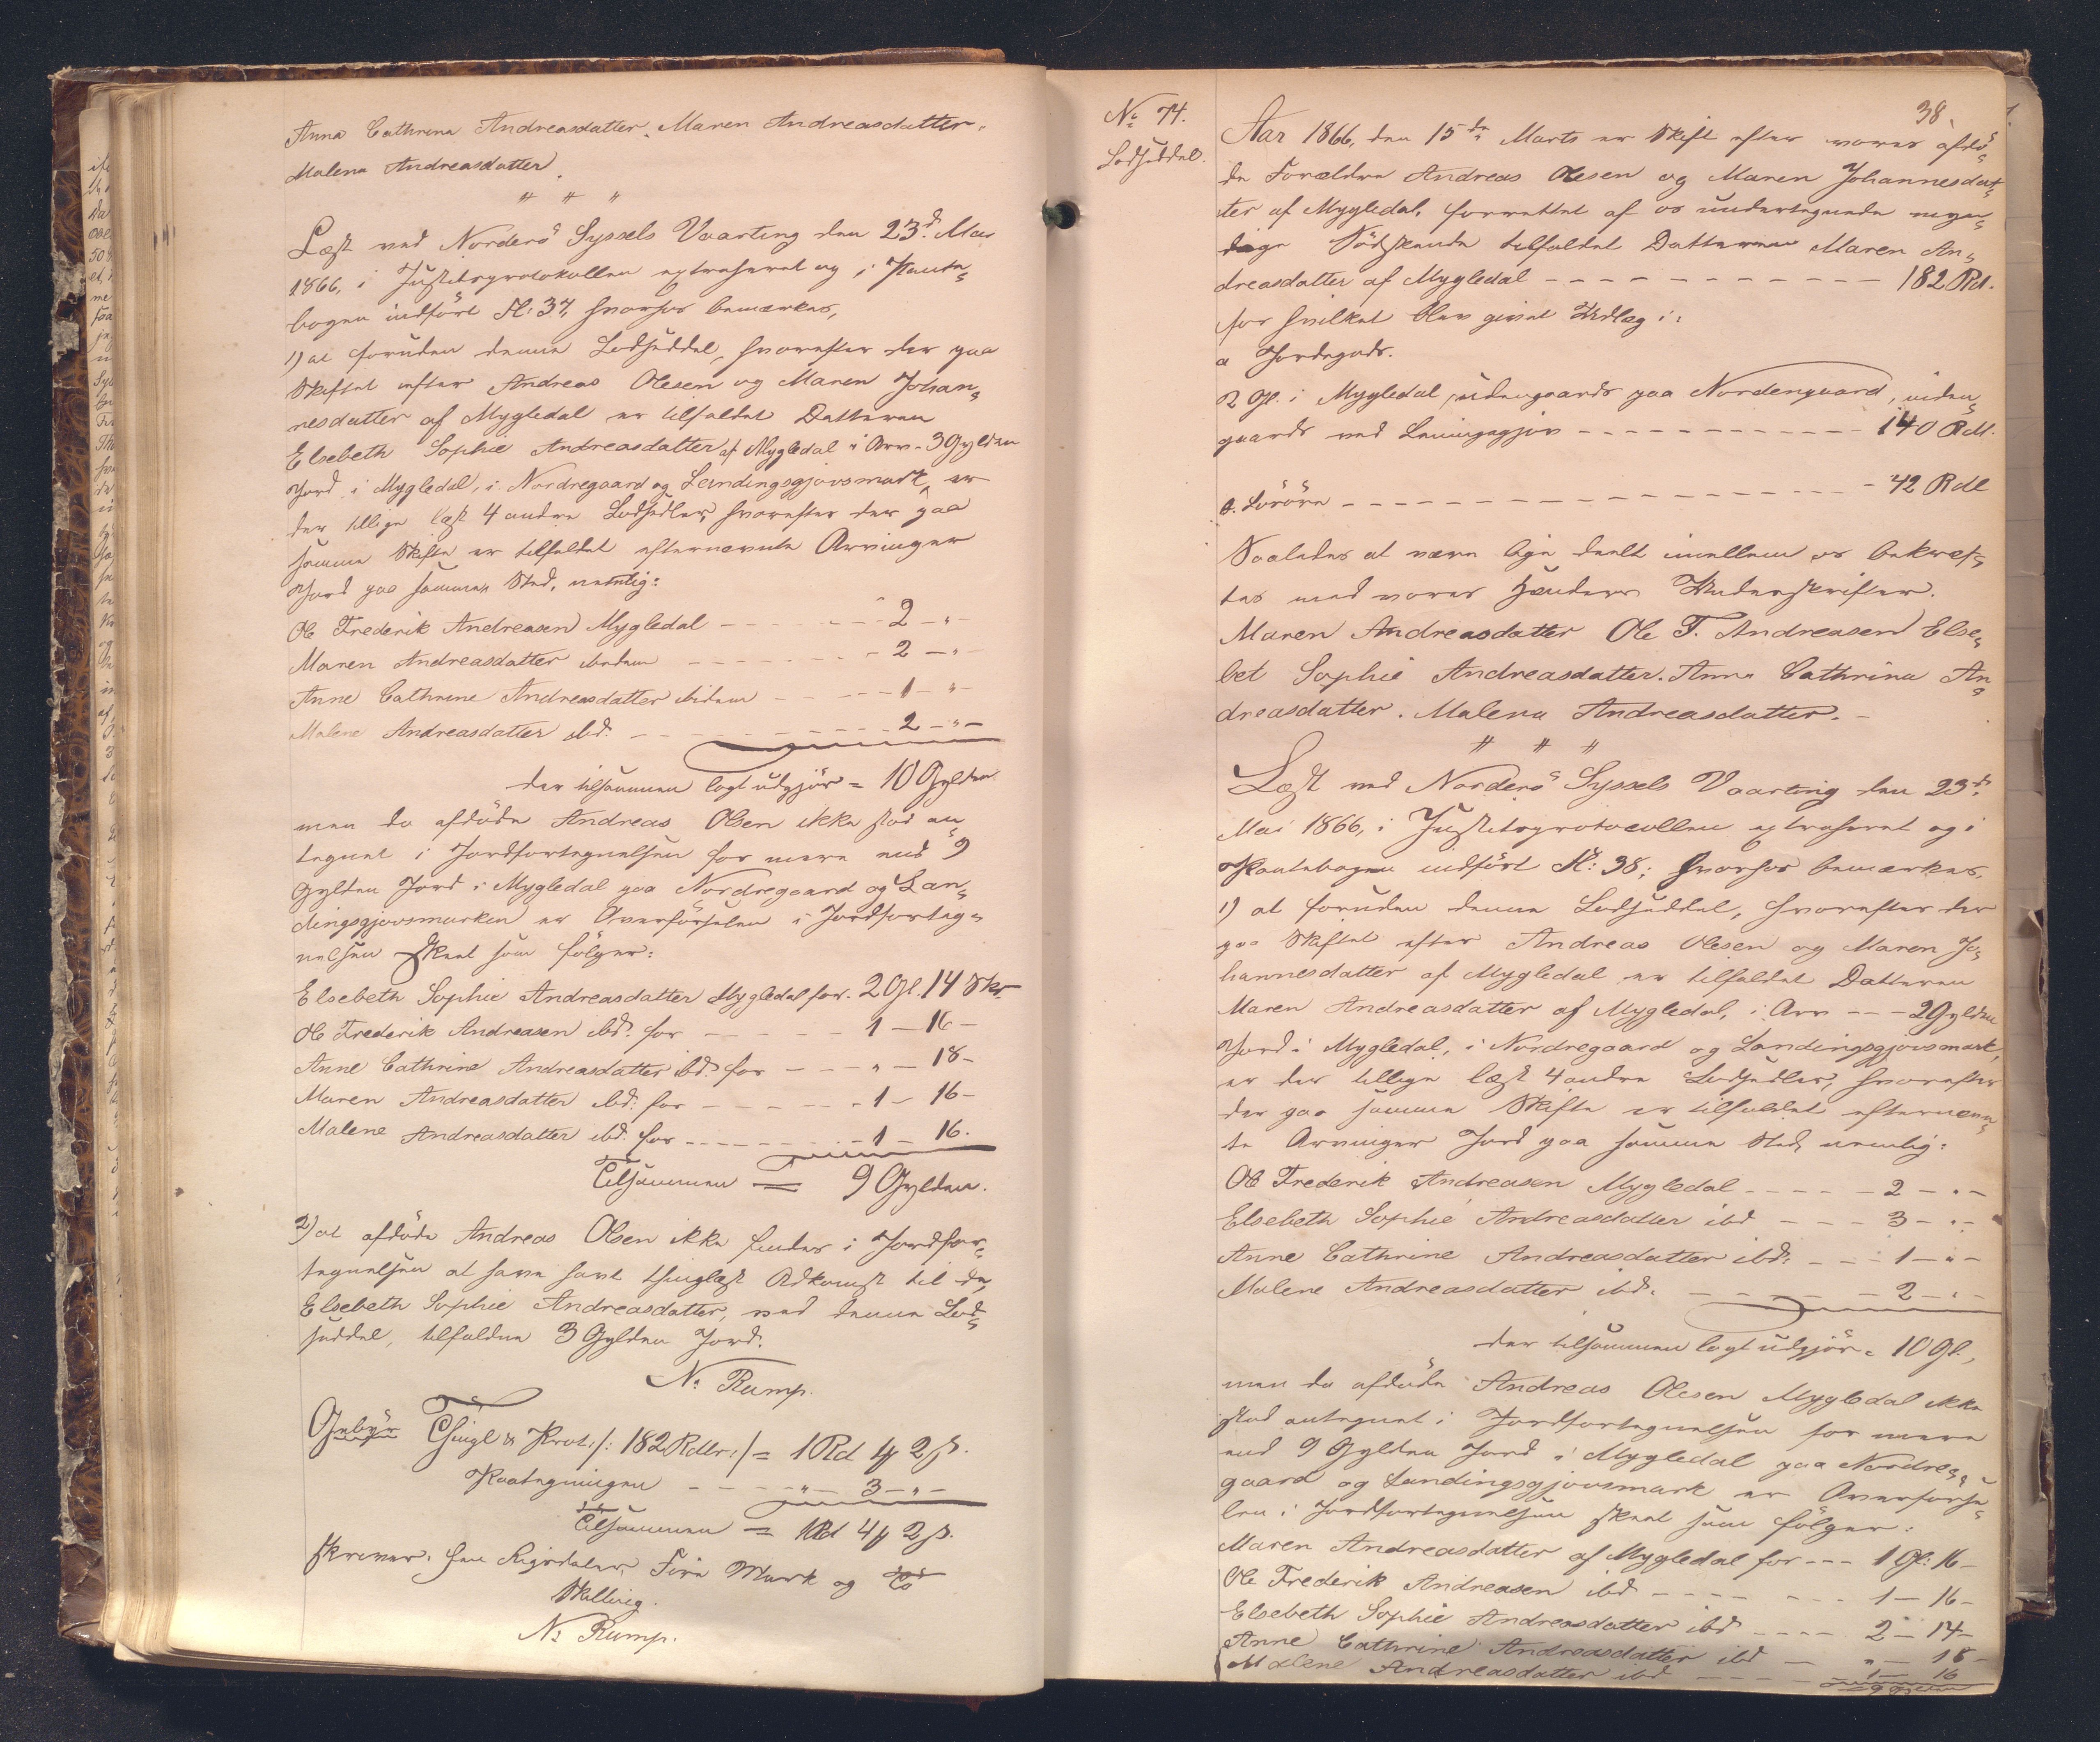 Anna Cathrina Andreasdatter. Maren Andreasdatter.
Malena Andreasdatter.
" " "
Læst ved Norderö Syssels Vaarting den 23d. Mai
1866, i Justitsprotokollen extraheret og i Pante-
bogen indført Fl: 37, hvorfor bemærkes,
1) at foruden denne Lodseddel, hvorefter der paa
Skiftet efter Andreas Olesen og Maren Johan-
nesdatter af Mygledal er tilfaldet Datteren
Elsebeth Sophie Andreasdatter af Mygledal i Arv - 3 Gylden
Jord i Mygledal, i Nordregaard og Landingsgjovsmark, er
der tillige læst 4 andre Lodsedler, hvorefter der paa
samme Skifte er tilfaldet efternævnte Arvinger
Jord paa samme Sted, nemlig:
Ole Frederik Andreasen Mygledal - - - 2 - " -
Maren Andreasdatter ibidem - - - 2 - " -
Anne Cathrine Andreasdatter ibidem - - - 1 - " -
Malene Andreasdatter ibd. - - - 2 - " -
der tilsammen lagt udgjør = 10 Gylden
men da afdøde Andreas Olsen ikke stod an-
tegnet i Jordfortegnelsen for mere end 9
Gylden Jord i Mygledal paa Nordregaard og Lan-
dingsgjovsmarken er Overførselen i Jordforteg-
nelsen skeet som følger:
Elsebeth Sophie Andreasdatter Mygledal for. 2 Gl. 14 Skr
Ole Frederik Andreasen ibd. for - - - 1 - 16 -
Anne Cathrine Andreasdatter ibd. for - - - " - 18 -
Maren Andreasdatter ibd. for - - - 1 - 16 -
Malene Andreasdatter ibd. for - - - 1 - 16.
Tilsammen = 9 Gylden.
2) at afdøde Andreas Olsen ikke findes i Jordfor-
tegnelsen at have havt thinglæst Adkomst til de,
Elsebeth Sophie Andreasdatter, ved denne Lod-
seddel, tilfaldne 3 Gylden Jord.
N. Rump.
Gebyr Thingl & Prot: /: 182 Rdlr: / = 1 Rd 1 ₰ 2 ß.
Paategningen - - - " - 3 - " -
Tilsammen = 1 Rd 4 ₰ 2 ß.
skriver: Een Rigsdaler, Fire Mark og To
Skilling.
N. Rump.
No 74.
Lodseddel.
38.
Aar 1866, den 15de Marts er Skift efter vores afdø-
de Forældre Andreas Olesen og Maren Johannesdat-
ter af Mygledal, forrettet af os undertegnede myn-
dige Södskende tilfaldet Datteren Maren An-
dreasdatter af Mygledal - - - 182 Rd.
for hvilket blev givet Udlæg i:
a Jordegods.
2 Gl. i Mygledal, udengaards paa Nordengaard, inden-
gaards ved - - - 140 Rdl.
b. Løsøre - - - 42 Rdl
Saaledes at være lige deelt imellem os bekræf-
tes med vores Hænders Underskrifter.
Maren Andreasdatter Ole F. Andreasen Else-
bet Sophie Andreasdatter. Anna Cathrina An-
dreasdatter. Malena Andreasdatter. -
" " "
Læst ved Norderö Syssels Vaarting den 23d.
Mai 1866, i Justitsprotocollen extraheret og i
Pantebogen indført Fl: 38; hvorfor bemærkes,
1) at foruden denne Lodseddel, hvorefter der
paa Skiftet efter Andreas Olesen og Maren Jo-
hannesdatter af Mygledal er tilfaldet Datteren
Maren Andreasdatter af Mygledal, i Arv - - - 2 Gylden
Jord i Mygledal, i Nordregaard og Landingsgjovsmark,
er der tillige læst 4 andre Lodsedler, hvorefter
der paa samme Skifte er tilfaldet efternævn-
te Arvinger Jord paa samme Sted, nemlig:
Ole Frederik Andreasen Mygledal - - - 2 - " -
Elsebeth Sophie Andreasdatter ibd - - - 3 - " -
Anne Cathrine Andreasdatter ibd: - - - 1 - " -
Malene Andreasdatter ibd. - - - 2 - " -
der tilsammen lagt udgjør = 10 Gl.,
men da afdøde Andreas Olesen Mygledal ikke
stod antegnet i Jordfortegnelsen for mere
end 9 Gylden Jord i Mygledal paa Nordre-
gaard og Landingsgjovsmark er Overførse-
len i Jordfortegnelsen skeet som følger:
Maren Andreasdatter af Mygledal for - - - 1 Gl: 16 -
Ole Frederik Andreasen ibd - - - 1 - 16 -
Elsebeth Sophie Andreasdatter ibd - - - 2 - 14 -
Anne Cathrine Andreasdatter ibd - " - 18 -
Malene Andreasdatter ibd - - - 1 - 16
9 Gylden